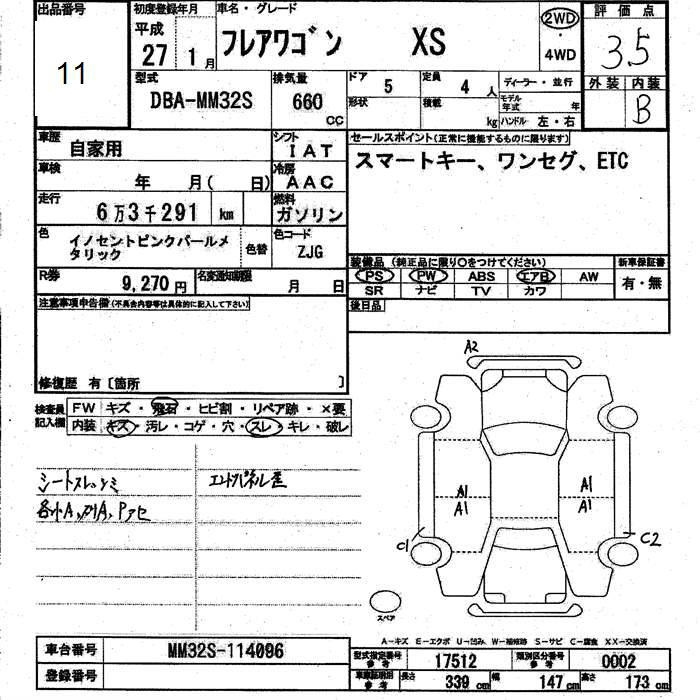 出品番号
11
初度登録年月
平成
27 1月
車名・グレード
フレアワゴン XS
2WD
・
4WD
評価点
3.5
外装 内装
B
型式
DBA-MM32S
排気量
660
CC
ドア 5
定員 4人
ディーラー・並行
形状
積載 kg
モデル年式 年
ハンドル 左・右
車歴
自家用
シフト
IAT
車検
年 月( 日)
冷房
AAC
走行
6万3千291 km
燃料
ガソリン
色
イノセントピンクパールメ
タリック
色替
色コード
ZJG
R券
9,270円
名変通知期限
月 日
セールスポイント(正常に機能するものに限ります)
スマートキー、ワンセグ、ETC
装備品 (純正品に限り○をつけてください)
PS PW ABS エアB AW
SR ナビ TV カワ
新車保証書
有・無
後日品
注意事項申告欄(不具合内容等は具体的に記入して下さい)
修復歴 有〔箇所 〕
検査員
記入欄
FW キズ・飛石・ヒビ割・リペア跡・×要
内装 キズ・汚レ・コゲ・穴・スレ・キレ・破レ
エンドパネル歪
A2
A1
A1
A1
A1
C1
C2
スペア
A-キズ E-エクボ U-凹み W-補修跡 S-サビ C-腐食 XX-交換済
車台番号
MM32S-114096
登録番号
型式指定番号
参考
17512
類別区分番号
参考
0002
車車証明用
参考
長さ 339cm
幅 147cm
高さ 173cm